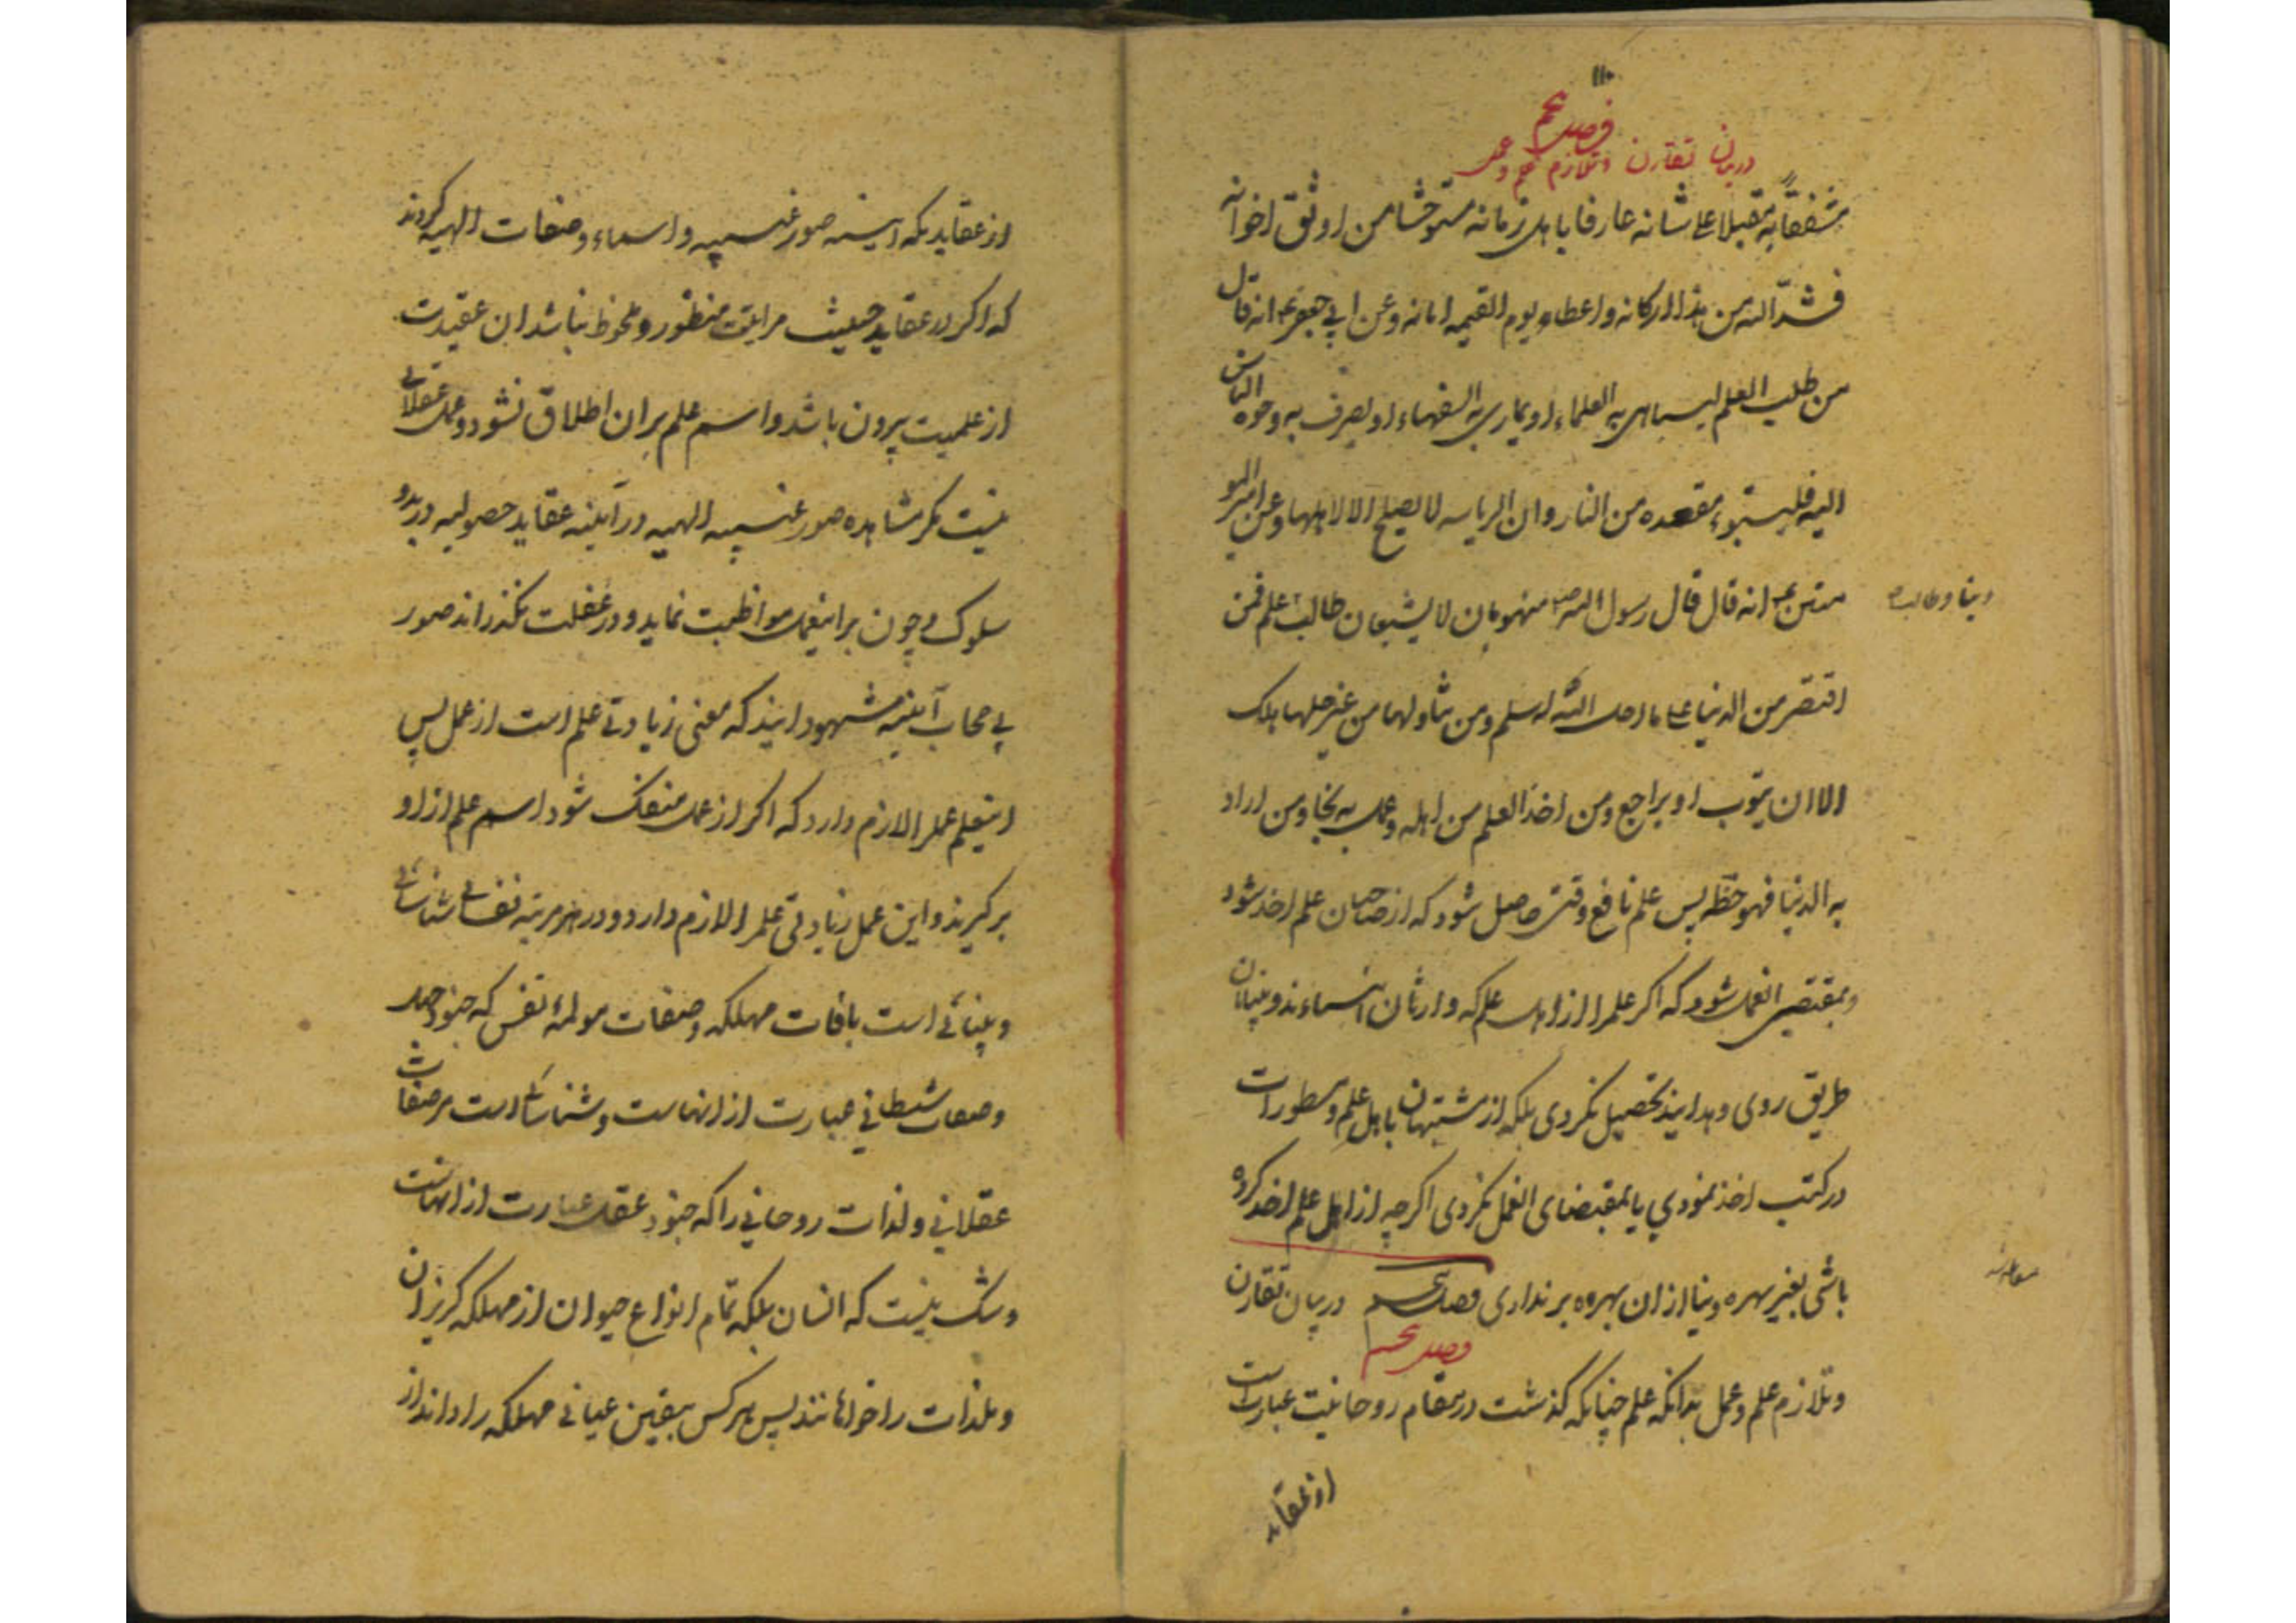 ۱۱۰
فصل پنجم
در بیان تقارن و تلازم علم و عمل
مشفقا به مقبلا علی شانه عارفا باهل زمانه مستوحشا من اوثق اخوانه
فشد الله من هذا ارکانه و اعطاه یوم القیمه امانه و عن ابی جعفر ع انه قال
من طلب العلم لیباهی به العلماء او یماری به السفهاء او یصرف به وجوه الناس
الیه فلیتبوء مقعده من النار و ان الریاسه لا یصلح الا لاهلها و عن امیر المو
منین ع انه قال قال رسول الله ص منهومان لا یشبعان طالب علم فمن
دنیا و طالب
اقتصر من الدنیا علی ما احل الله له سلم و من تناولها من غیر حلها هلک
الا ان یتوب او یراجع و من اخذ العلم من اهله و عمل به نجا و من اراد
به الدنیا فهو حظه پس علم نافع وقتی حاصل شود که از صاحبان علم اخذ شود
و بمقتضی العمل شود که اگر علم را از اهل علم که وارثان انبیاءند و بینایان
طریق روی و هدایتند تحصیل نکردی بلکه از مشتبهان باهل علم و مسطورات
در کتب اخذ نمودی یا بمقتضای العمل نکردی اگرچه از اهل علم اخذ کرده
باشی بغیر بهره دنیا از ان بهره برنداری فصل پنجم در بیان تقارن
فصل پنجم
و تلازم علم و عمل بدانکه علم چنانکه گذشت در مقام روحانیت عبارت است
از عقاید
از عقایدیکه آینه صور غیبیه و اسماء و صفات الهیه گردند
که اگر در عقاید حیثیت مرآتیت منظور و ملحوظ نباشد ان عقیدت
از علمیت بیرون باشد و اسم علم بران اطلاق نشود و عمل عقلانی
نیست مگر مشاهده صور غیبیه الهیه در آینه عقاید حصولیه در بدو
سلوک و چون بر اینعمل مواظبت نماید و در غفلت نگذراند صور
بی حجاب آینه مشهود ایند که معنی زیادتی علم است از عمل پس
اینعلم عمل را لازم دارد که اگر از عمل منفک شود اسم علم از او
برگیرند و این عمل زیادتی علم را لازم دارد و در مرتبه نفسانی شناسائی
و بینائی است بآفات مهلکه و صفات مولمه نفس که جنود جهل
و صفات شیطانی عبارت از انهاست و شناسائی است مر صفات
عقلانی و لذات روحانی را که جنود عقل عبارت از انهاست
و شک نیست که انسان بلکه تمام انواع حیوان از مهلکه گریزان
و ملذات را خواهانند پس هر کس بیقین عیانی مهلکه را داند از